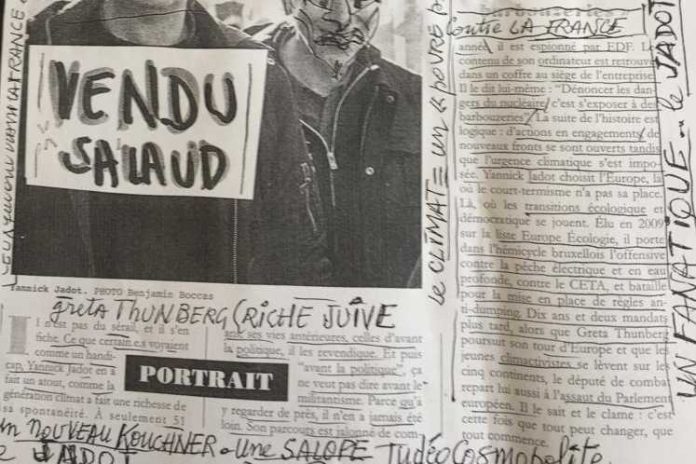 VENDU
SALAUD
Yannick Jadot. PHOTO Benjamin Boccas
Greta THUNBERG (RICHE JUIVE
Il n'est pas du sérail, et il s'en
fiche. Ce que certain.e.s voyaient
comme un handi-
cap, Yannick Jadot en a
fait un atout, comme la
génération climat a fait une richesse de
sa spontanéité. À seulement 51
PORTRAIT
ses vies antérieures, celles d'avant
la politique, il les revendique. Et puis
"avant la politique", ça
ne veut pas dire avant le
militantisme. Parce qu'à
y regarder de près, il n'en a jamais été
loin. Son parcours est jalonné de com-
un NOUVEAU KOUCHNER. une SALOPE JudéoCosmopolite.
JADOT
le CLIMAT = un
Contre LA FRANCE
barbouzeries
année, il est espionné par EDF. Le
contenu de son ordinateur est retrouvé
dans un coffre au siège de l'entreprise.
Il le dit lui-même : "Dénoncer les dan-
gers du nucléaire, c'est s'exposer à des
barbouzeries". La suite de l'histoire est
logique : d'actions en engagements, de
nouveaux fronts se sont ouverts tandis
que l'urgence climatique s'est impo-
sée. Yannick Jadot choisit l'Europe, là
où le court-termisme n'a pas sa place.
Là, où les transitions écologique et
démocratique se jouent. Élu en 2009
sur la liste Europe Écologie, il porte
dans l'hémicycle bruxellois l'offensive
contre la pêche électrique et en eau
profonde, contre le CETA, et bataille
pour la mise en place de règles an-
ti-dumping. Dix ans et deux mandats
plus tard, alors que Greta Thunberg
poursuit son tour d'Europe et que les
jeunes climactivistes se lèvent sur les
cinq continents, le député de combat
repart lui aussi à l'assaut du Parlement
européen. Il le sait et le clame : c'est
cette fois que tout peut changer, que
tout commence.
UN FANATIQUE.. le JADOT